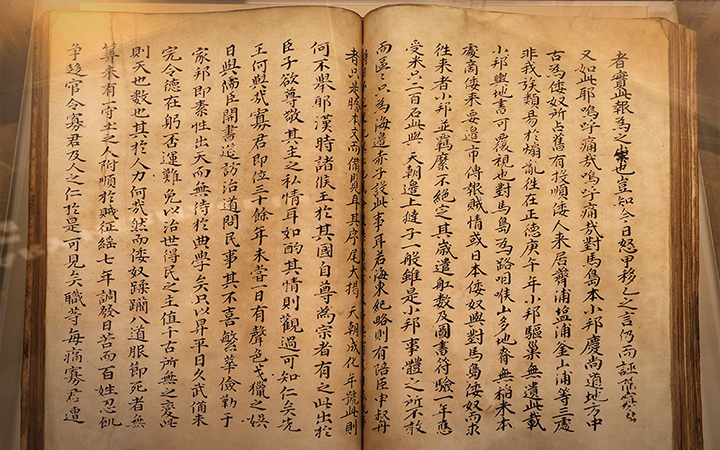 者實此報為之祟也豈知今日怒甲移乙之言仍而誣陷寡君
又如此耶嗚呼痛哉嗚呼痛哉對馬島本小邦慶尚道地方中
古為倭奴所占舊有投順倭人來居薺浦塩浦釜山浦等三處
非我族類易於煽亂徃在正德庚午年小邦驅巢無遺此載
小邦輿地書可覆視也對馬島為路咽喉山多地脊無稻米本
處商倭來要邊市傳報賊情或日本倭奴與對馬倭奴而求
徃來者小邦正羈縻不絶之其歲遣舡數及圖書符驗一年應
受米只二百石此與 天朝邊上撻子一般雖是小邦事體之所不敢
而區〻只為海邊赤子設此事耳若海東紀略則有陪臣申叔舟
者只是謄本文而備覽耳其序尾大揭 天朝成化年號此則
何不舉耶漢時諸侯王於其國自尊為宗者有之此出於
臣子欲尊敬其主之私情耳如酌其情則觀過可知仁矣先
王何與哉寡君即位三十餘年未嘗一日有聲色弋獵之娛
日與儒臣開書筵訪治道問民事其不喜繁華儉勤于
家邦即素性出天而無待於典學矣只以昇平日久武備未
完令德在躬否運難免以治世得民之主值千古所無之變此
則天也數也其於人力何哉然而倭奴蹂躪八道服節死者無
筭未有一守土之人附順於賊征繇七年調發日苦而百姓忍飢
爭趍官令寡君及人之仁於是可見矣職等每痛寡君遭